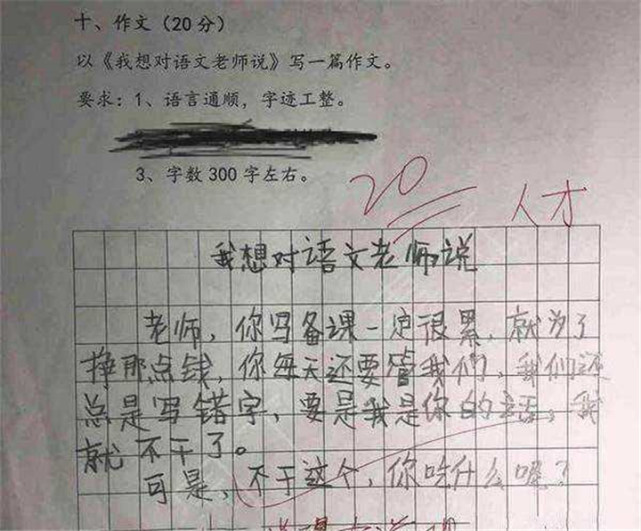 十、作文（20分）
以《我想对语文老师说》写一篇作文。
要求：1、语言通顺，字迹工整。
3、字数300字左右。
20
人才
我想对语文老师说
老师，你写备课一定很累，就为了
挣那点钱，你每天还要管我们，我们还
总是写错字，要是我是你的话，我
就不干了。
可是，不干这个，你吃什么呢？